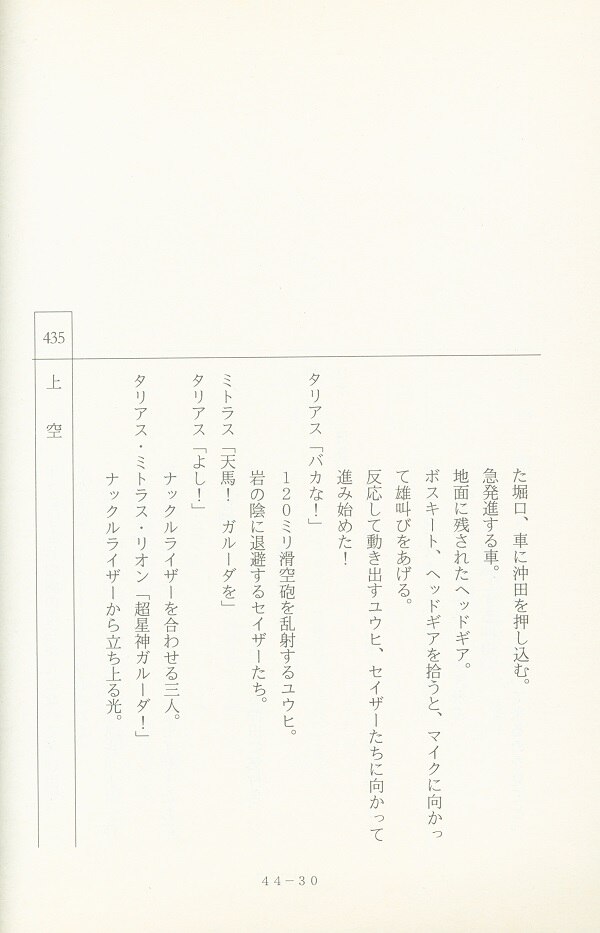 た堀口、車に沖田を押し込む。
急発進する車。
地面に残されたヘッドギア。
ボスキート、ヘッドギアを拾うと、マイクに向かっ
て雄叫びをあげる。
反応して動き出すユウヒ、セイザーたちに向かって
進み始めた！
タリアス「バカな！」
１２０ミリ滑空砲を乱射するユウヒ。
岩の陰に退避するセイザーたち。
ミトラス「天馬！　ガルーダを」
タリアス「よし！」
ナックルライザーを合わせる三人。
タリアス・ミトラス・リオン「超星神ガルーダ！」
ナックルライザーから立ち上る光。
435
上　空
４４－３０